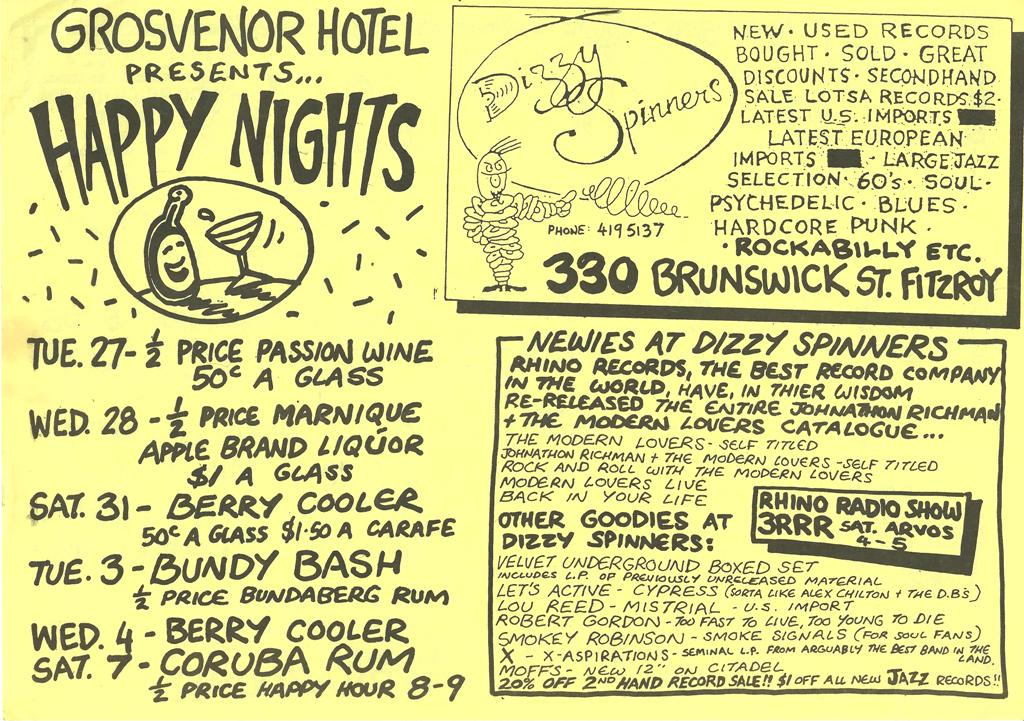 GROSVENOR HOTEL
PRESENTS...
HAPPY NIGHTS
TUE. 27 - ½ PRICE PASSION WINE
50c A GLASS
WED. 28 - ½ PRICE MARNIQUE
APPLE BRAND LIQUOR
$1 A GLASS
SAT. 31 - BERRY COOLER
50c A GLASS $1·50 A CARAFE
TUE. 3 - BUNDY BASH
½ PRICE BUNDABERG RUM
WED. 4 - BERRY COOLER
SAT. 7 - CORUBA RUM
½ PRICE HAPPY HOUR 8-9
Dizzy
Spinners
PHONE: 4195137
NEW · USED RECORDS
BOUGHT · SOLD · GREAT
DISCOUNTS · SECONDHAND
SALE LOTSA RECORDS $2 ·
LATEST U.S. IMPORTS
LATEST EUROPEAN
IMPORTS - LARGE JAZZ
SELECTION · 60's · SOUL ·
PSYCHEDELIC · BLUES ·
HARDCORE PUNK ·
· ROCKABILLY ETC.
330 BRUNSWICK ST. FITZROY
NEWIES AT DIZZY SPINNERS
RHINO RECORDS, THE BEST RECORD COMPANY
IN THE WORLD, HAVE, IN THIER WISDOM
RE-RELEASED THE ENTIRE JOHNATHON RICHMAN
+ THE MODERN LOVERS CATALOGUE...
THE MODERN LOVERS - SELF TITLED
JOHNATHON RICHMAN + THE MODERN LOVERS - SELF TITLED
ROCK AND ROLL WITH THE MODERN LOVERS
MODERN LOVERS LIVE
BACK IN YOUR LIFE
RHINO RADIO SHOW
3RRR SAT. ARVOS
4-5
OTHER GOODIES AT
DIZZY SPINNERS:
VELVET UNDERGROUND BOXED SET
INCLUDES L.P. OF PREVIOUSLY UNRELEASED MATERIAL
LET'S ACTIVE - CYPRESS (SORTA LIKE ALEX CHILTON + THE D.B's)
LOU REED - MISTRIAL - U.S. IMPORT
ROBERT GORDON - TOO FAST TO LIVE, TOO YOUNG TO DIE
SMOKEY ROBINSON - SMOKE SIGNALS (FOR SOUL FANS)
X - X-ASPIRATIONS - SEMINAL L.P. FROM ARGUABLY THE BEST BAND IN THE LAND.
MOFFS - NEW 12" ON CITADEL
20% OFF 2ND HAND RECORD SALE!! $1 OFF ALL NEW JAZZ RECORDS!!